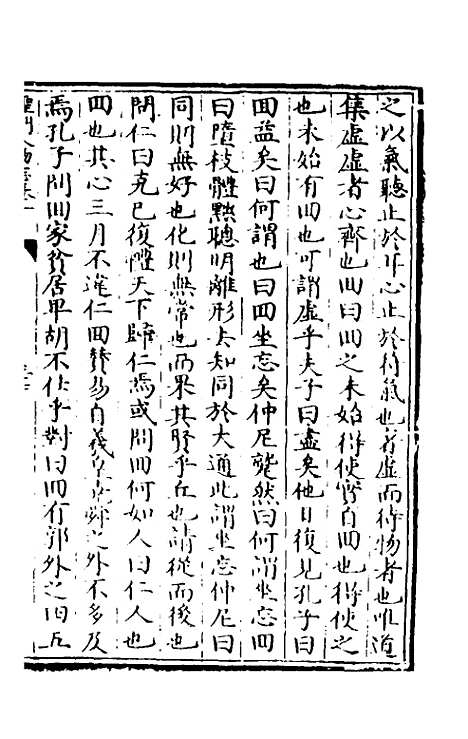 之以氣聽止於耳心止於符氣也者虛而待物者也唯道
集虛虛者心齊也回曰回之未始得使實自回也得使之
也未始有回也可謂虛乎夫子曰盡矣他日復見孔子曰
回益矣曰何謂也曰回坐忘矣仲尼蹵然曰何謂坐忘回
曰墮枝體黜聰明離形去知同於大通此謂坐忘仲尼曰
同則無好也化則無常也而果其賢乎丘也請從而後也
問仁曰克己復禮天下歸仁焉或問回何如人曰仁人也
回也其心三月不違仁回贊易自羲皇堯舜之外不多及
焉孔子問回家貧居卑胡不仕乎對曰回有郭外之田五